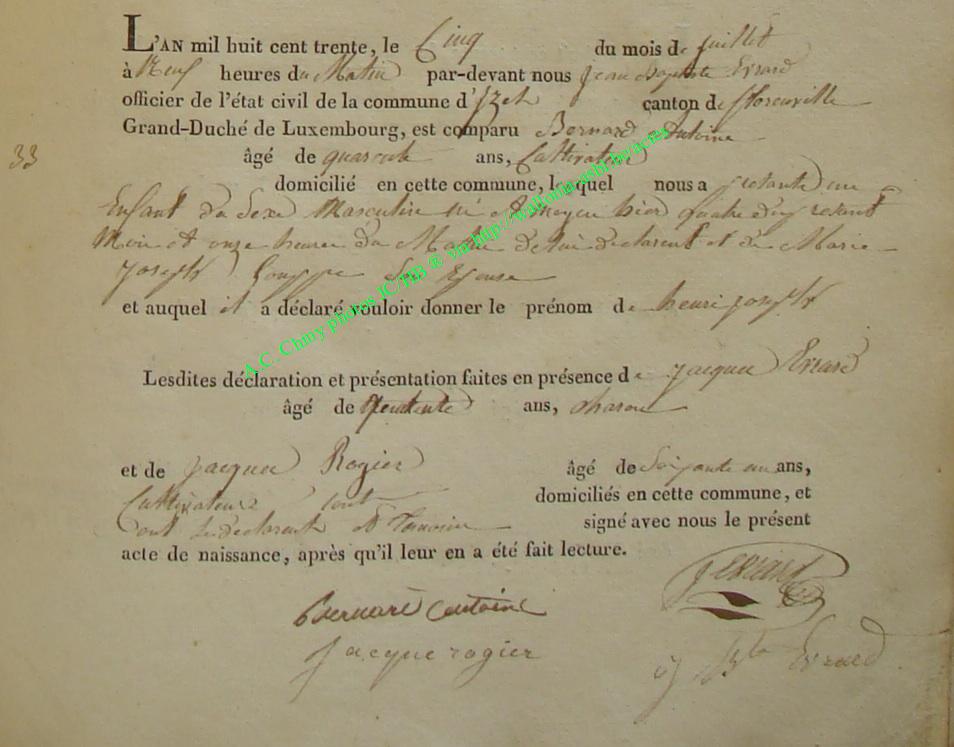 L'AN mil huit cent trente, le Cinq du mois de juillet
à Neuf heures du Matin par-devant nous Jean Baptiste Evrard
officier de l'état civil de la commune d'Izel canton de florenville
Grand-Duché de Luxembourg, est comparu Bernard Antoine
33
âgé de quarante ans, Cultivateur
domicilié en cette commune, lequel nous a présenté un
Enfant du Sexe Masculin né hier quatre du présent
Mois et onze heures du Matin de lui declarant et de Marie
joseph Son Epouse
et auquel il a déclaré vouloir donner le prénom de henri joseph
A.C. Chiny photos IC/PIB ® via http://wallonia-asbl.be/actes
Lesdites déclaration et présentation faites en présence de jacque Evrard
âgé de ans, charon
et de jacque Rogier âgé de Soixante un ans,
Cultivateur domiciliés en cette commune, et
dont le declarant et temoin signé avec nous le présent
acte de naissance, après qu'il leur en a été fait lecture.
J EVRARD
bernard antoine
jacque rogier
j Bte Evrard